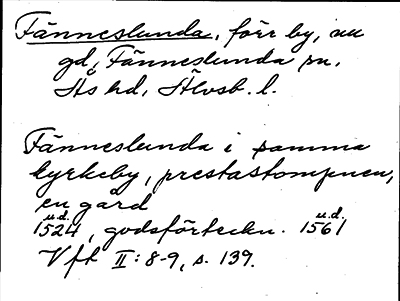 Fänneslunda, förr by, nu
gd, Fänneslunda sn,
Ås hd, Älvsb. l.
Fänneslunda i samma
kyrkeby, prestastompnen,
en gård
u.d. u.d.
1524, godsförteckn. 1561
Vft II: 8-9, s. 139.